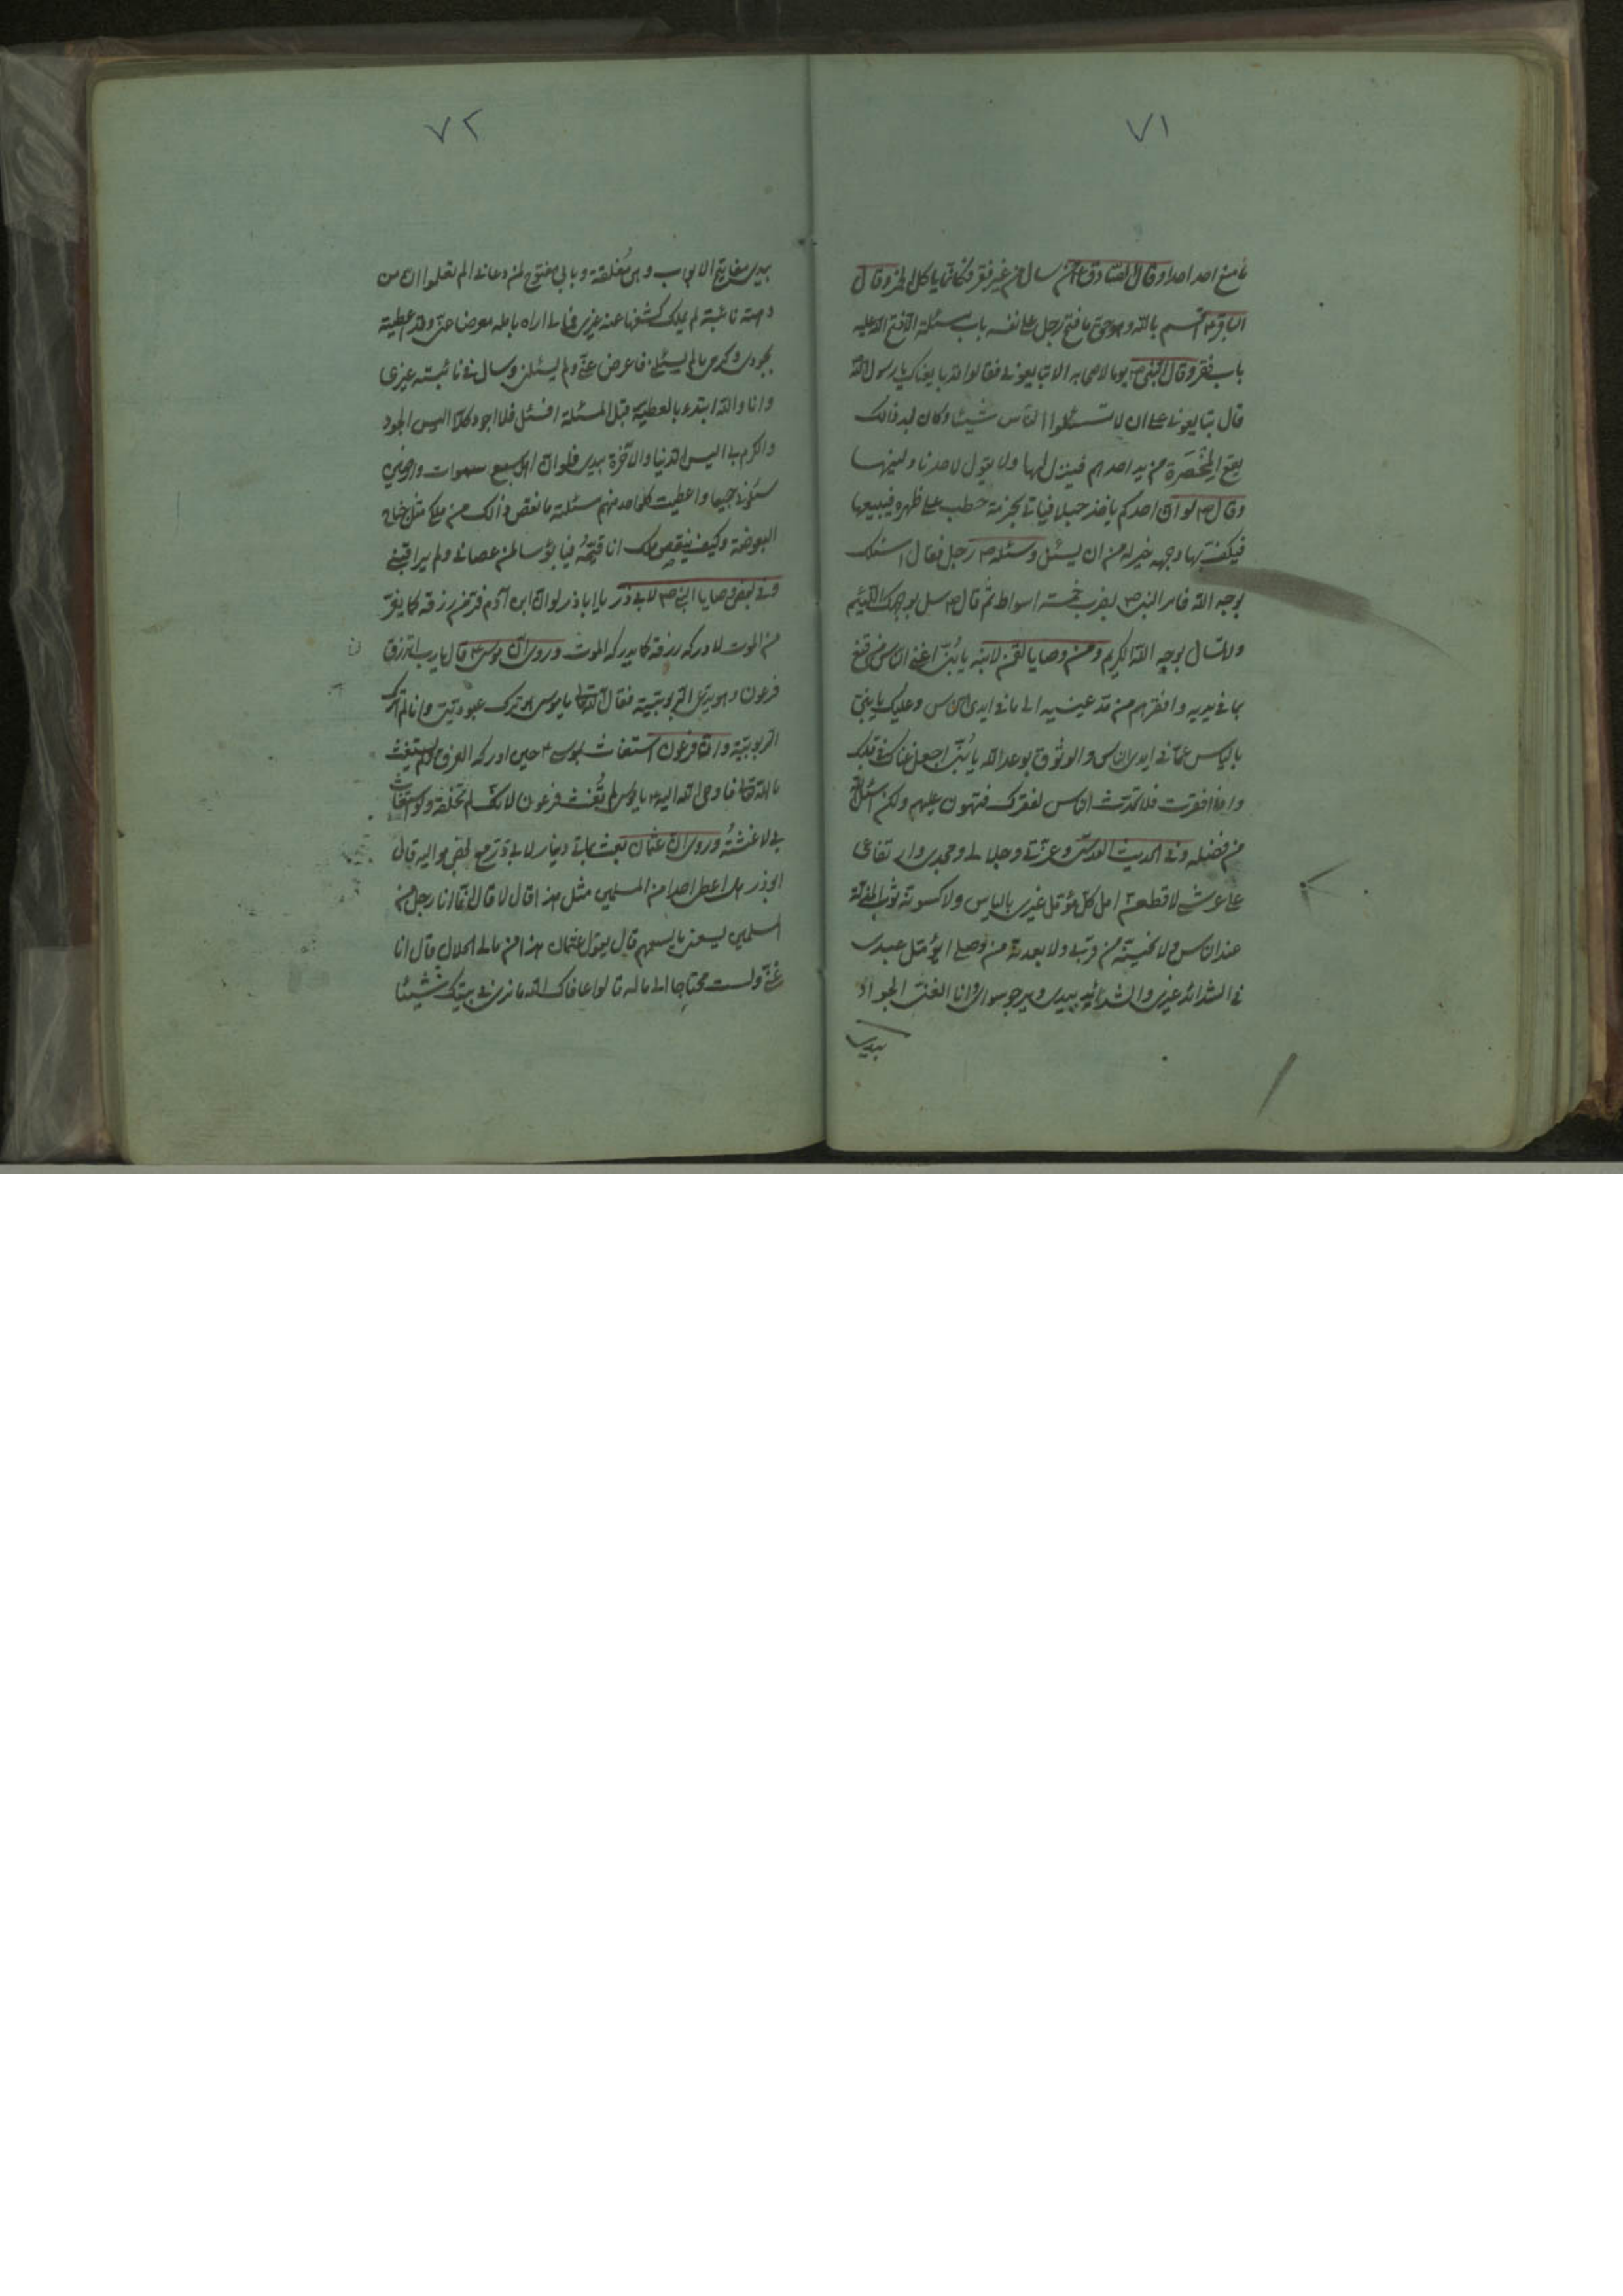 ٧١
ما منع احد احدا وقال الصادق ع من سال من غير فقر فكانما ياكل الخمر وقال
الباقر ع اقسم بالله وهو حق ما فتح رجل على نفسه باب مسئلة الا فتح الله عليه
باب فقر وقال النبي ص يوما لاصحابه الا تبايعوني فقالوا قد بايعناك يا رسول الله
قال تبايعوني على ان لا تسئلوا الناس شيئا وكان بعد ذالك
يقع المخصرة من يد احدهم فينزل لها ولا يقول لاحد ناولنيها
وقال ص لو ان احدكم ياخذ حبلا فياتي بحزمة حطب على ظهره فيبيعها
فيكف بها وجهه خير له من ان يسئل وسئله ص رجل فقال اسئلك
بوجه الله فامر النبي ص بضرب خمسة اسواط ثم قال ص سل بوجهك اللئيم
ولا تسال بوجه الله الكريم ومن وصايا لقمن لابنه يا بني اغنى الناس من قنع
بما في يديه وافقرهم من مد عينيه الى ما في ايدي الناس وعليك يا بني
بالياس عما في ايدي الناس والوثوق بوعد الله يا بني اجعل غناك في قلبك
واذا افقرت فلا تحدث الناس بفقرك فتهون عليهم ولكن اسئل الله
من فضله وفي الحديث القدسي وعزتي وجلالي ومجدي وارتفاعي
على عرشي لاقطعن امل كل مؤمل غيري بالياس ولاكسونه ثوب المذلة
عند الناس ولانحينه من قربي ولابعدنه من وصلي ايؤمل عبدي
في الشدائد غيري والشدائد بيدي ويرجو سوائي وانا الغني الجواد
بيدي
٧٢
بيدي مفاتيح الابواب وهي مغلقة وبابي مفتوح لمن دعاني الم تعلموا ان من
دهته نائبة لم يملك كشفها عنه غيري فمالي اراه بامله معرضا عني وقد اعطيته
بجودي وكرمي مالم يسئلني فاعرض عني ولم يسئلني وسال في نائبته غيري
وانا والله ابتدء بالعطية قبل المسئلة افسئل فلا اجود كلا اليس الجود
والكرم لي اليس الدنيا والآخرة بيدي فلو ان اهل سبع سموات وارضين
سئلوني جميعا واعطيت كل واحد منهم مسئلته ما نقص ذالك من ملكي مثل جناح
البعوضة وكيف ينقص ملك انا قيمه فيا بؤسا لمن عصاني ولم يراقبني
وفي بعض وصايا النبي ص لابي ذر يا اباذر لو ان ابن آدم فر من رزقه كما يفر
من الموت لادركه رزقه كما يدركه الموت وروي ان موسى ع قال يا رب اترزق
فرعون وهو يدعي الربوبية فقال الله تعالى يا موسى هو ترك عبوديتي وانا لم اترك
الربوبية وان فرعون استغاث بموسى ع حين ادركه الغرق ولم يستغث
بالله تعالى فاوحى الله اليه يا موسى لم تغث فرعون لانك لم تخلقه ولو استغاث
بي لاغثته وروي ان عثمان بعث بمائتي دينار لابي ذر مع بعض مواليه قال
ابوذر هل اعطى احدا من المسلمين مثل هذا قال لا قال انما انا رجل من
المسلمين يسعني ما يسعهم قال يقول عثمان هذا من مالي الحلال قال انا
غني ولست محتاجا الى ماله قالوا عافاك الله ما نرى في بيتك شيئا